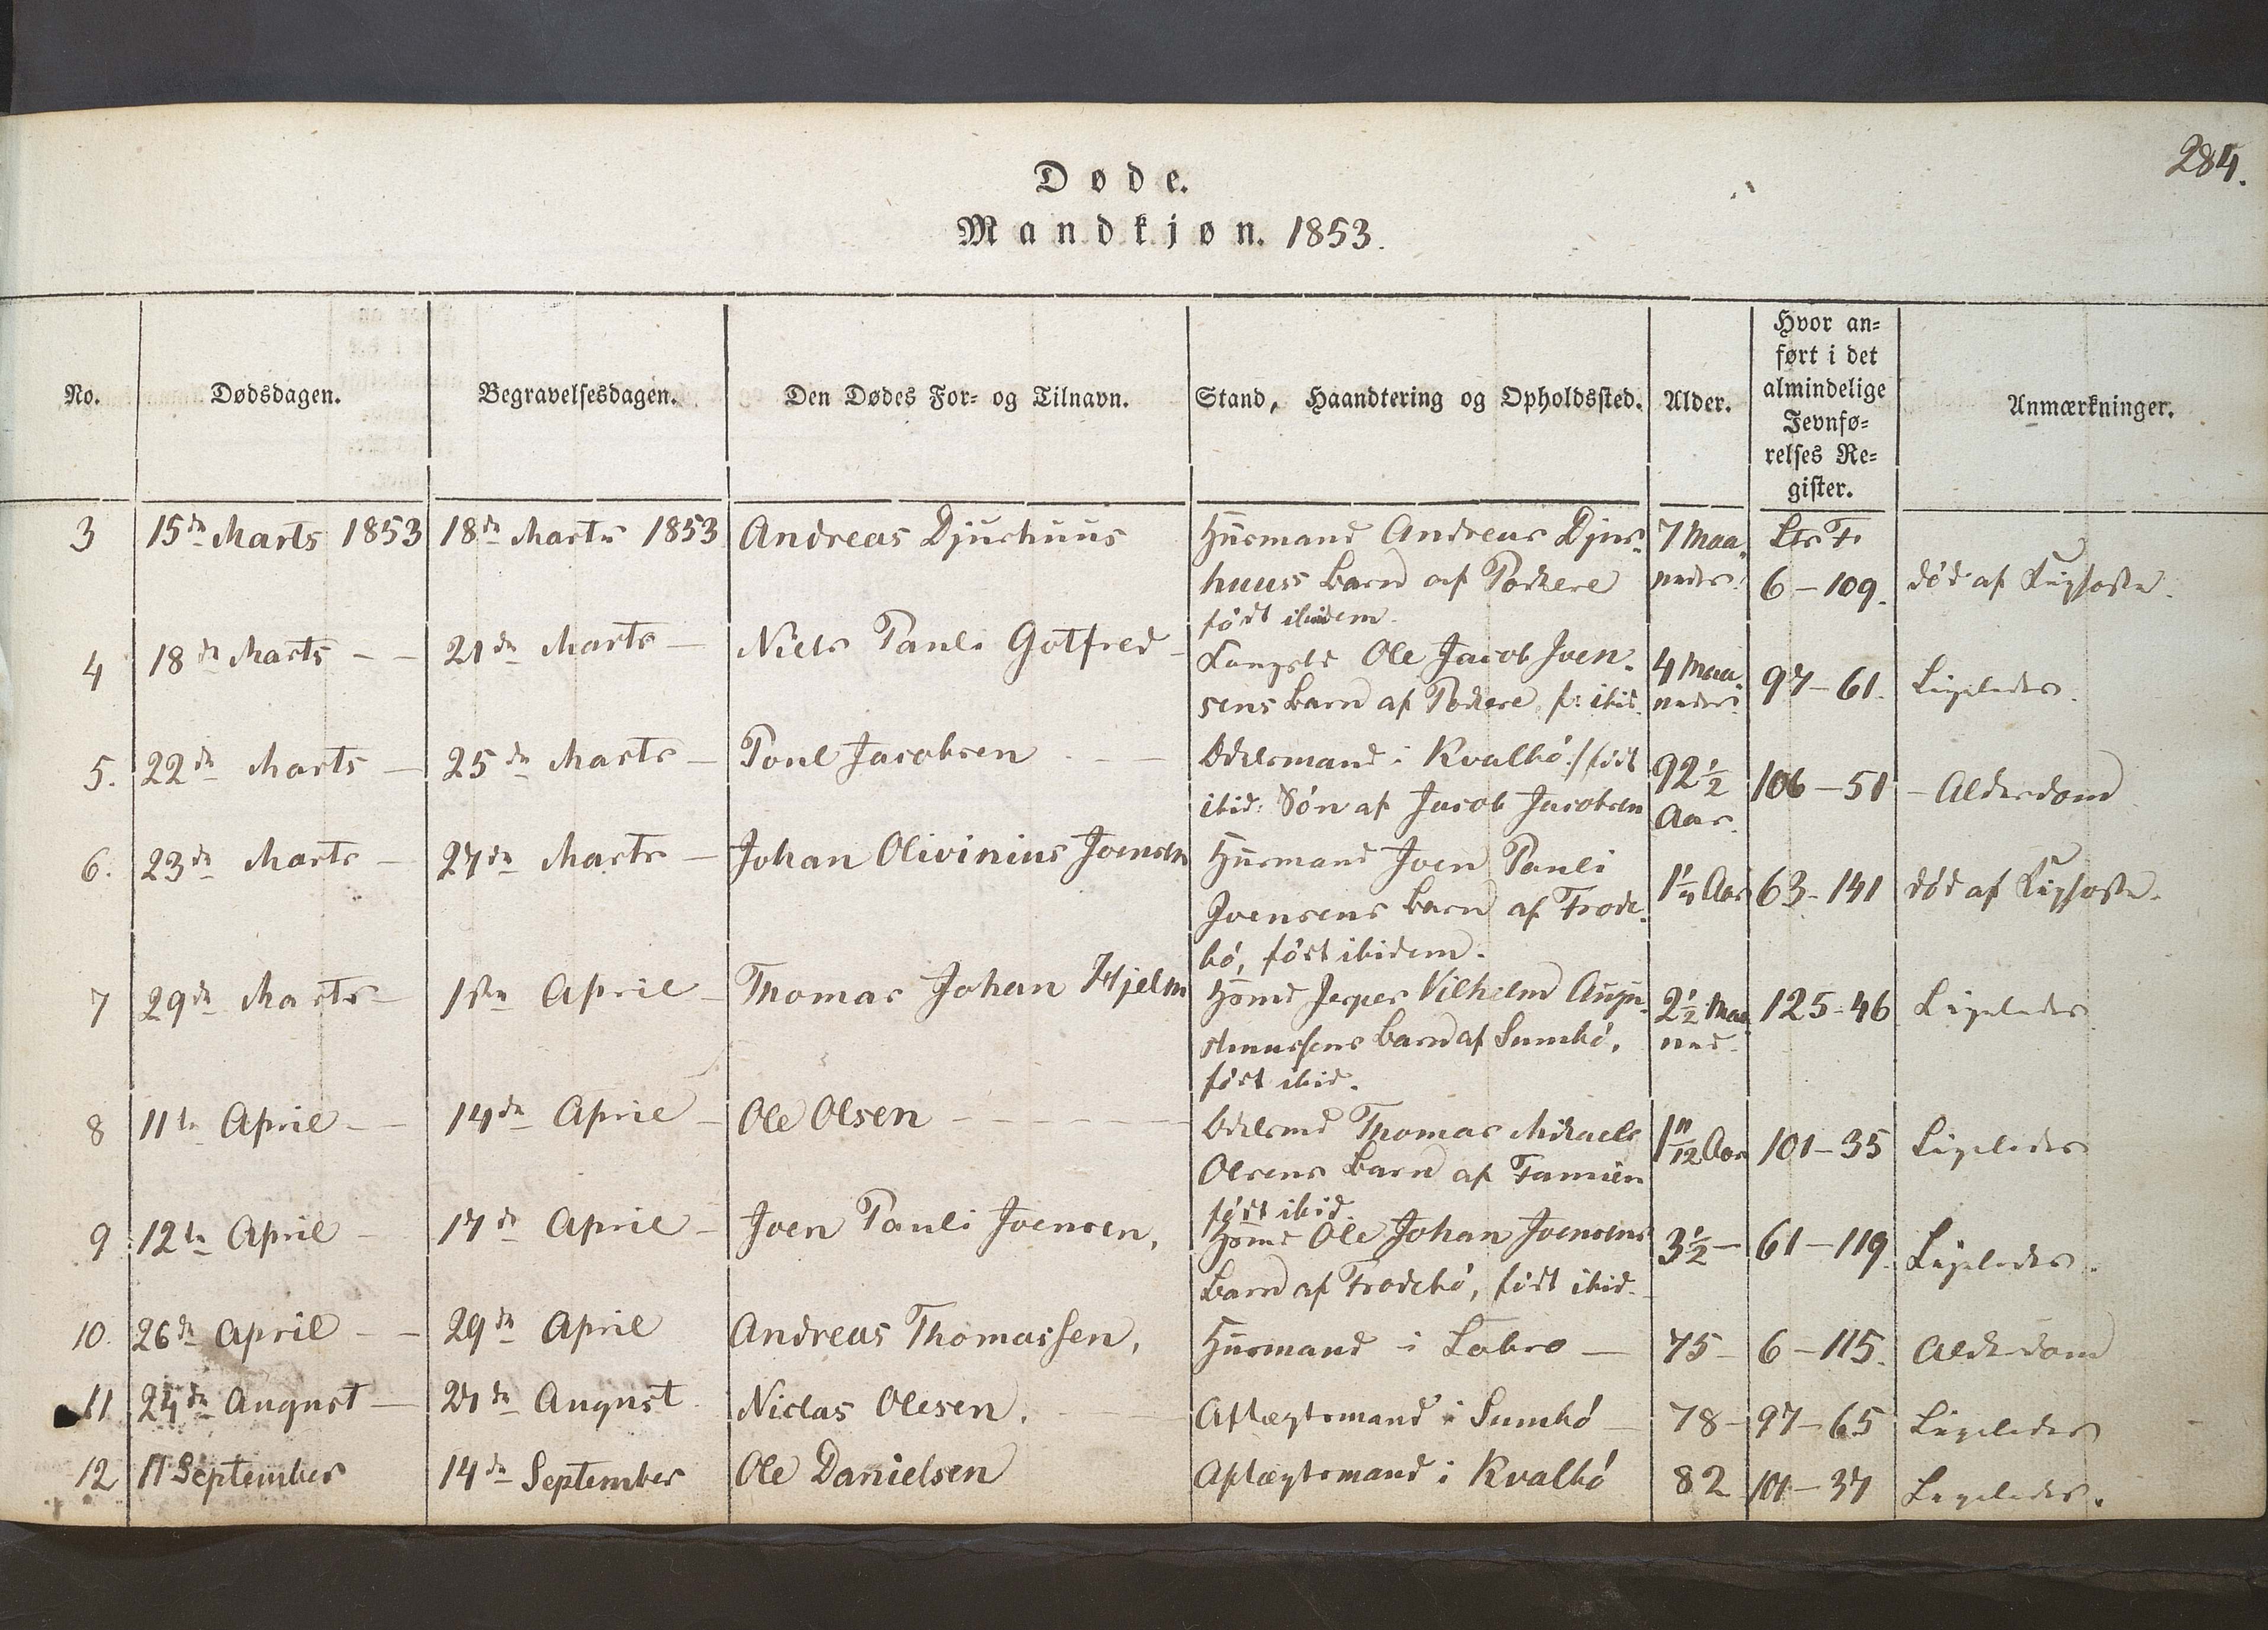 284.
Døde.
Mandkjøn. 1853.
No.
Dødsdagen.
Begravelsesdagen.
Den Dødes For- og Tilnavn.
Stand, Haandtering og Opholdssted.
Alder.
Hvor an-
ført i det
almindelige
Jevnfø-
relses Re-
gister.
Anmærkninger.
3 15de Marts 1853 18de Marts 1853 Andreas Djurhuus Huusmand Andreas Djur- 7 Maa-
huuss Barn af Porkere neder. 6-109. død af Kighoste.
født ibidem.
4 18de Marts - - 21de Marts - Niels Pauli Gotfred - Ole Jacob Joen- 4 Maa-
sens Barn af Porkere f: ibid. neder. 97-61. Ligeledes.
5. 22de Marts - 25de Marts - Poul Jacobsen - - Odelsmand i Kvalbø, født 92 1/2
ibid: Søn af Jacob Jacobsen Aar. 106-51 - Alderdom
6. 23de Marts - 27de Marts - Johan Olivinius Joensen Huusmand Joen Pauli
Joensens Barn af Frode- Aar 63-141 død af Kighoste.
bø, født ibidem.
7 29de Marts - 1ste April - Thomas Johan Hjelm Huusmd Jesper Vilhelm Augu- 2 1/2 Maa- 125-46 Ligeledes
stinussens Barn af Sumbø, ned.
født ibid.
8 11te April - - 14de April - Ole Olsen - - - - - Odelsmd Thomas Mikaels 1 11/12 Aar 101-35 Ligeledes
Olsens Barn af Famien
født ibid.
9 12te April - 17de April - Joen Pauli Joensen, Huusmd Ole Johan Joensens 3 1/2 - 61-119. Ligeledes.
Barn af Frodebø, født ibid.
10. 26de April - - 29de April Andreas Thomassen, Huusmand i Lobro - 75 - 6-115. Alderdom
11 24de August - 27de August Niclas Olesen. - - Aftægtsmand i Sumbø - 78 - 97-65 Ligeledes
12 11 September 14de September Ole Danielsen Aftægtsmand i Kvalbø 82 101-37 Ligeledes.